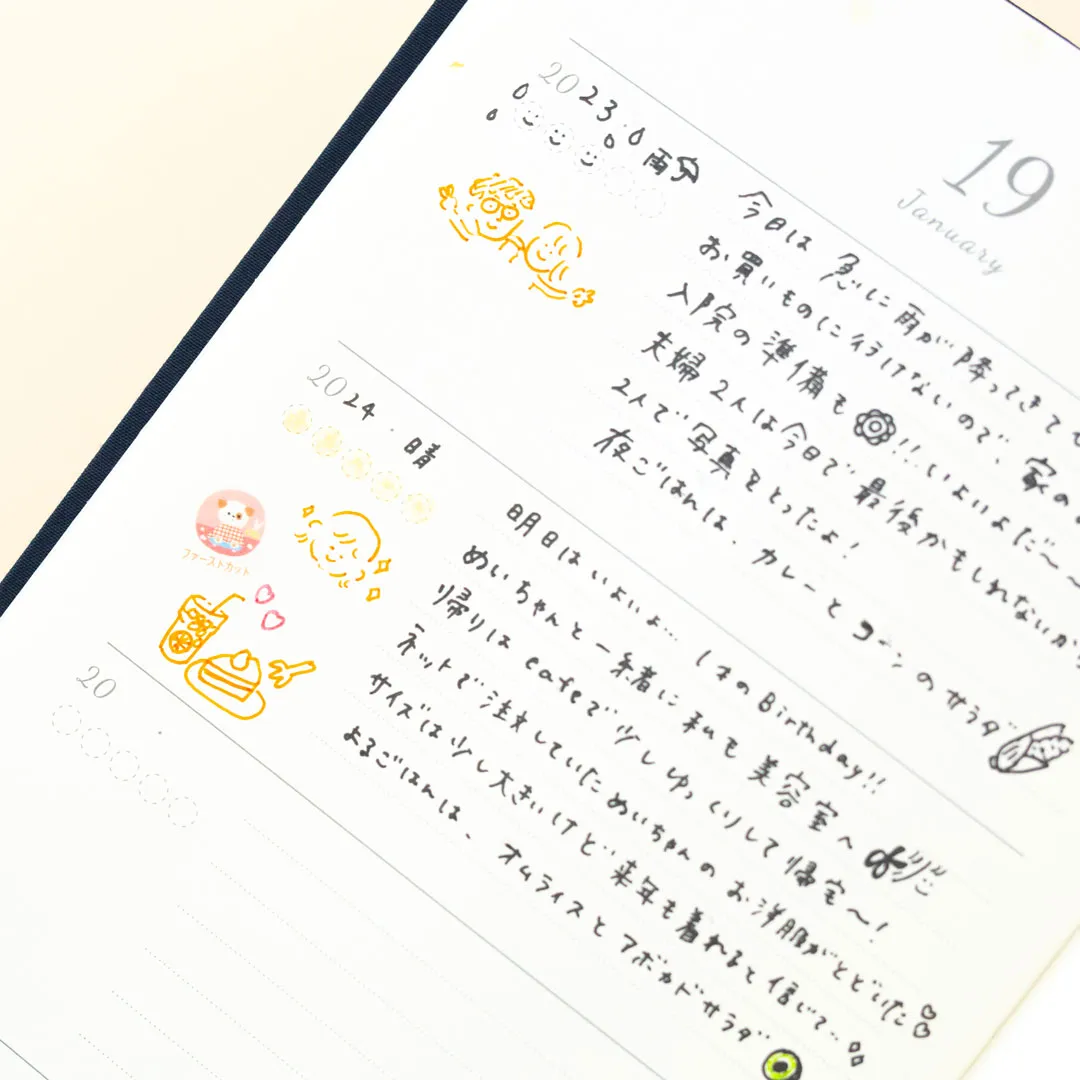 19
January
2023. 雨
今日は 急に 雨が 降ってきて
お買いものに行けないので、家の
入院の準備も!!いよいよだ〜〜
夫婦 2人は今日で 最後かもしれないから
2人で写真をとったよ!
夜ごはんは、カレーと コーンのサラダ
2024. 晴
ファーストカット
明日はいよいよ… 1才の Birthday!!
めいちゃんと一緒に 私も 美容室へ
帰りは cafeで少しゆっくりして帰宅〜!
ネットで注文していためいちゃんの お洋服がとどいた
サイズは少し大きいけど来年も着れると信じて…
よるごはんは、オムライスと アボカドサラダ
20